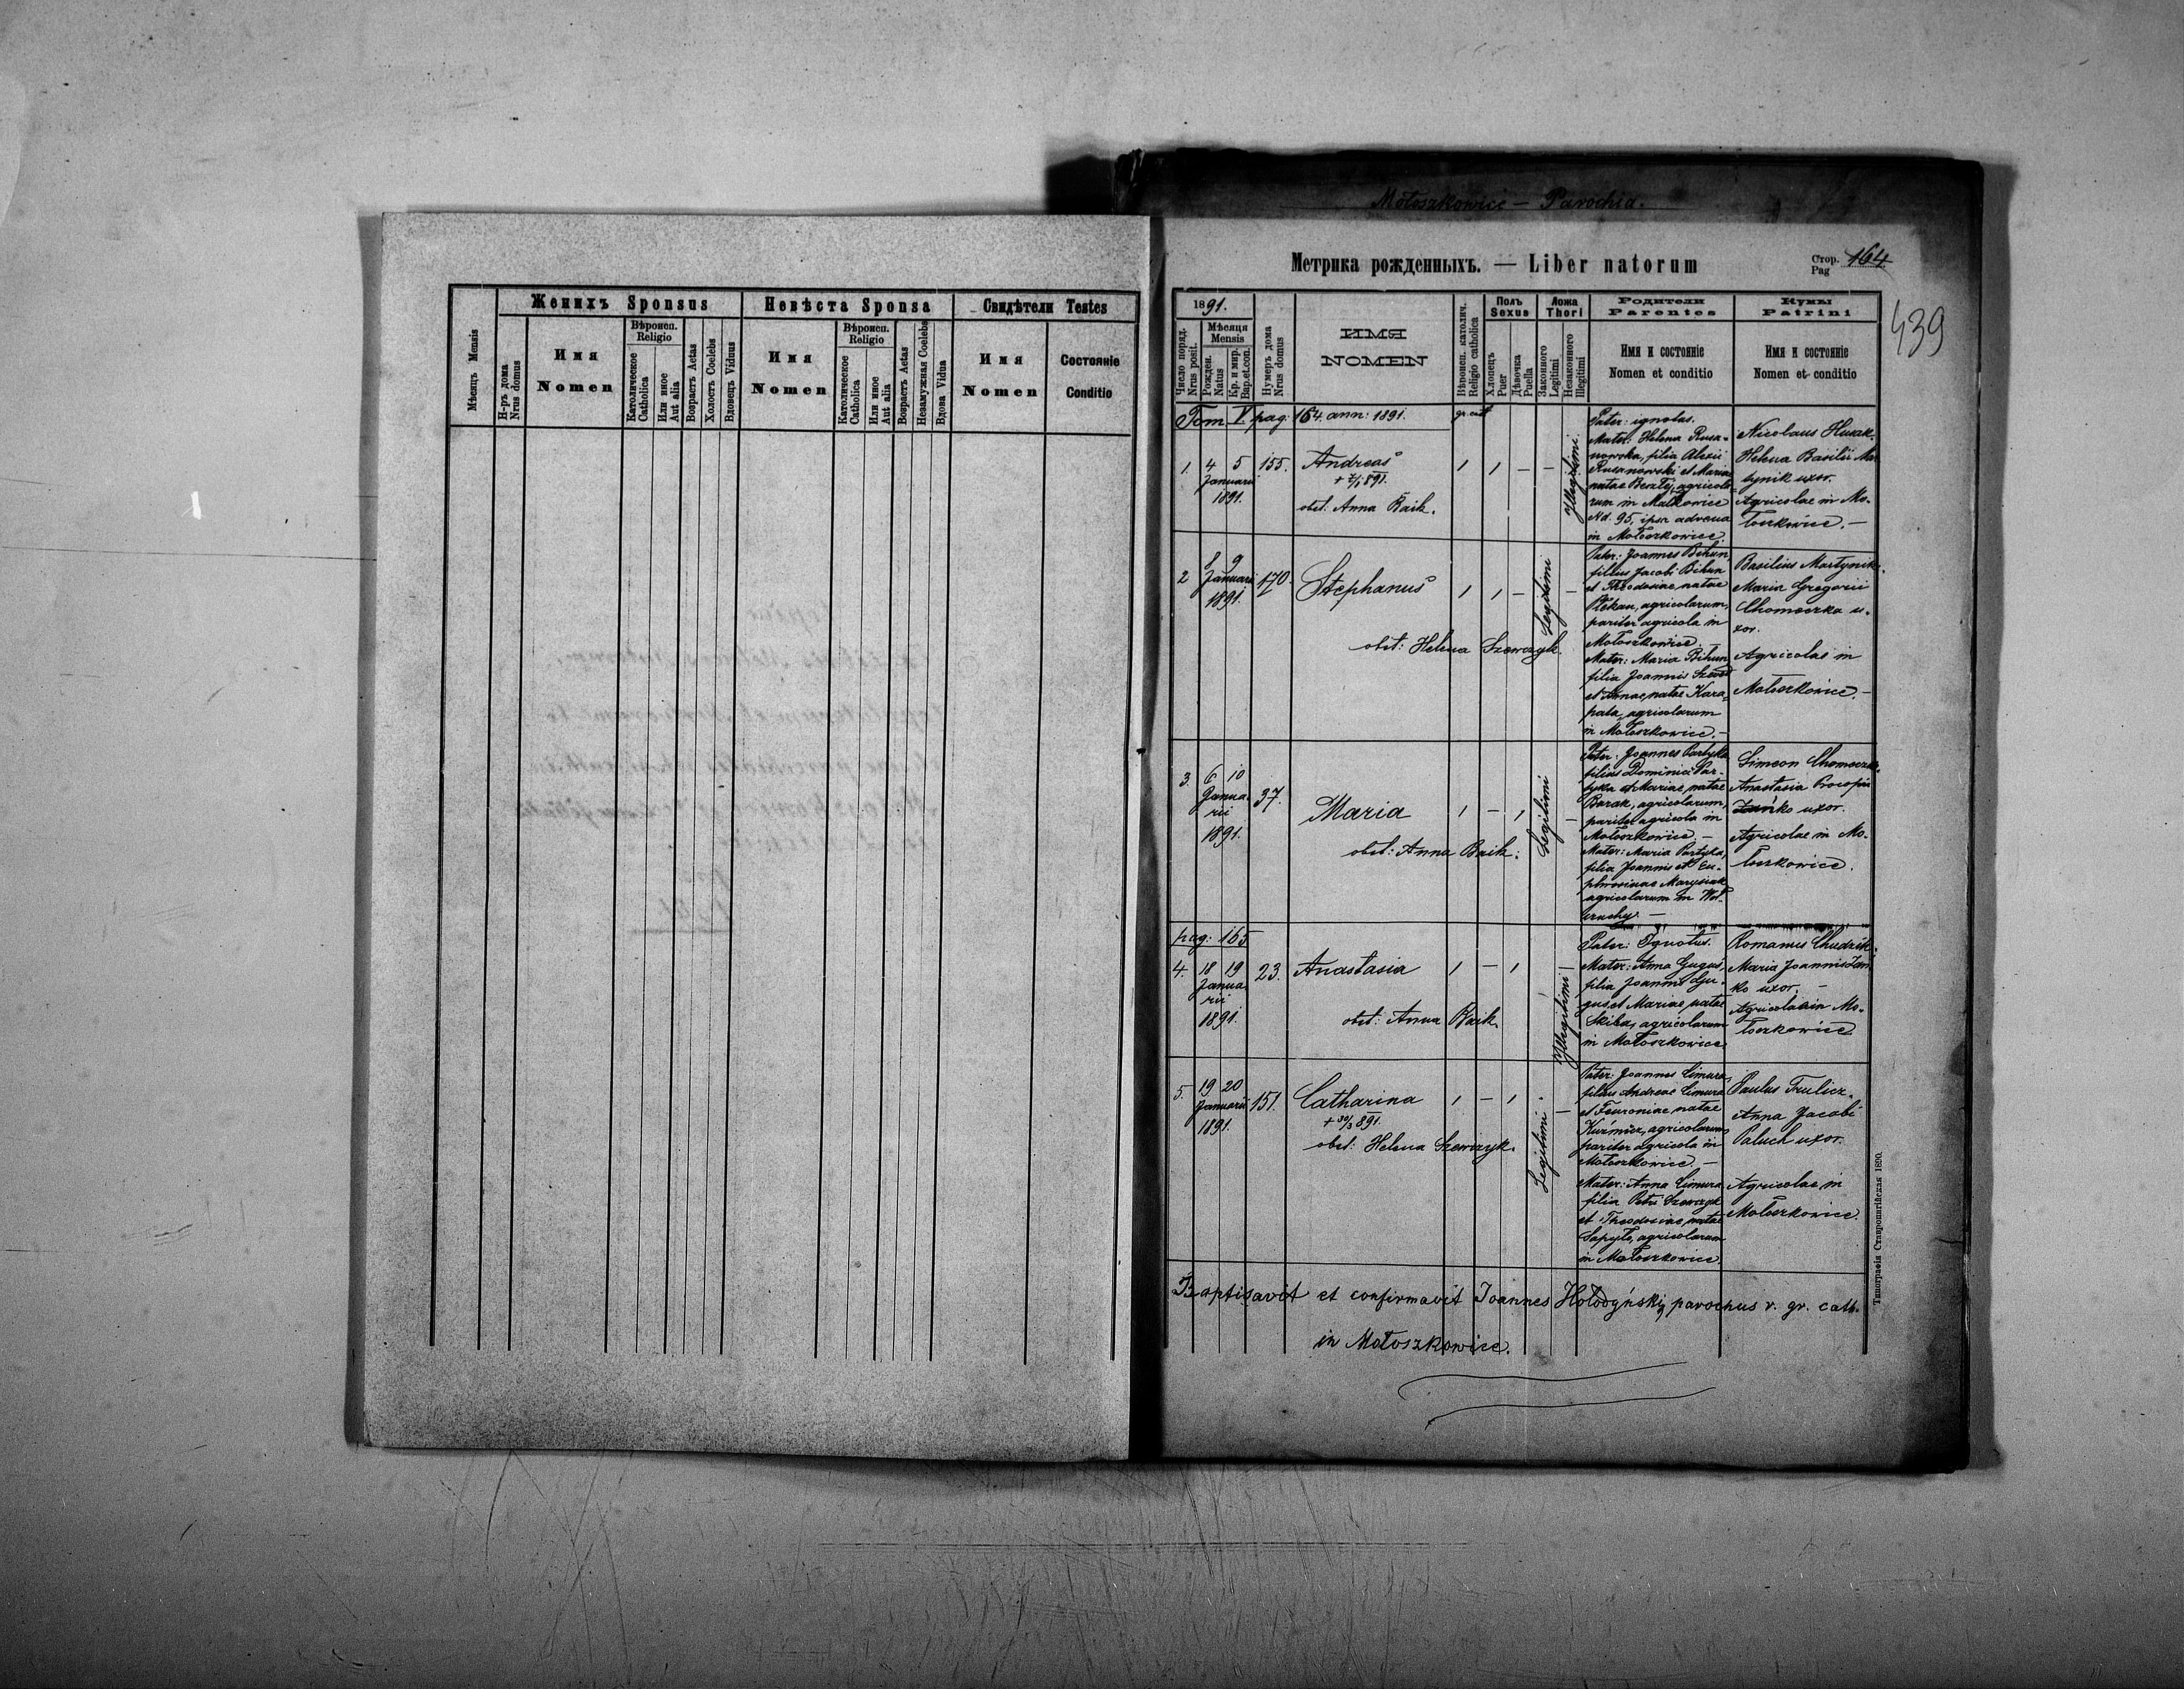 Женихъ Sponsus
Невѣста Sponsa
Свидѣтели Testes
Мѣсяцъ Mensis
Н-ръ дома
Nrus domus
Имя
Nomen
Вѣроисп.
Religio
Католическое
Catholica
Или иное
Aut alia
Возрасть Aetas
Холость Coelebs
Вдовець Viduus
Имя
Nomen
Вѣроисп.
Religio
Католическое
Catholica
Или иное
Aut alia
Возрасть Aetas
Незамужная Coelebs
Вдова Vidua
Имя
Nomen
Состоянiе
Conditio
Mołoszkowice — Parochia.
Метрика рожденныхъ. — Liber natorum
Стор.
Pag
164
439
1891.
Число поряд.
Nrus posit.
Мѣсяця
Mensis
Рожден.
Natus
Кр. и мир.
Bap. et. con.
Нумеръ дома
Nrus domus
ИМЯ
NOMEN
Вѣроисп. католич.
Religio catholica
Полъ
Sexus
Хлопець
Puer
Дѣвочка
Puella
Ложа
Thori
Законного
Legitimi
Незаконного
Illegitimi
Родители
Parentes
Имя и состоянiе
Nomen et conditio
Кумы
Patrini
Имя и состоянiе
Nomen et conditio
Tom V. pag: 164. ann: 1891.
gr. cat
1. 4 5 155.
Januarii
1891.
Andreas
obst: Anna Baik.
Illegitimi
Pater: ignotus.
Mater: Helena Rusa-
nowska, filia Alexii
Rusanowski et Mariae
natae agricola-
rum in Małkowice
Nd. 95, ipsa advena
in Mołoszkowice.
Nicolaus Husak.
Helena Basilii Mar
tynik uxor.
Agricolae in Mo-
łoszkowice. —
2 8 9 170.
Januarii
1891.
Stephanus
obst: Helena Szewczyk.
Legitimi
Pater: Joannes Bihun
filius Jacobi Bihun
et Theodosiae, natae
agricolarum,
pariter agricola in
Mołoszkowice. —
Mater: Maria Bihun
filia Joannis
et Annae, natae Kara-
pata, agricolarum
in Mołoszkowice. —
Basilius Martynik.
Maria Gregorii
Chomoczka u-
xor.
Agricolae in
Mołoszkowice. —
3. 6 10 37.
Janua-
rii
1891.
Maria
obst: Anna Baik.
Legitimi
Pater: Joannes Partyka
filius Dominici Par-
tyka et Mariae, natae
Burak, agricolarum,
pariter agricola in
Mołoszkowice. —
Mater: Maria Partyka,
filia Joannis et Eu-
phrosinae Marysiak
agricolarum in

Simeon Chomoczka.
Anastasia Procopii
Zańko uxor.
Agricolae in Mo-
łoszkowice.
pag: 165
4. 18 19 23.
Janua
rii
1891.
Anastasia
obst: Anna Baik.
Illegitimi
Pater: Ignotus.
Mater: Anna Guguś,
filia Joannis Gu-
guś et Mariae, natae
Skiba, agricolarum
in Mołoszkowice.
Romanus Chudzik.
Maria Joannis Zań
ko uxor. —
Agricolae in Mo-
łoszkowice.
5. 19 20 151.
Januarii
1891.
Catharina
+ 30/3 891.
obst: Helena Szewczyk.
Legitimi
Pater: Joannes Cimura,
filius Andreae Cimura
et Feuroniae natae
Kuźmicz, agricolarum
pariter agricola in
Mołoszkowice. —
Mater: Anna Cimura
filia Petri Szewczyk
et Theodosiae, natae
Sapyło, agricolarum
in Mołoszkowice.
Paulus Trulicz.
Anna Jacobi
Paluch uxor.
Agricolae in
Mołoszkowice.
Baptisavit et confirmavit Joannes Hołodyński, parochus r. gr. cath.
in Mołoszkowice.
Типографiя Ставропигiйская 1890.